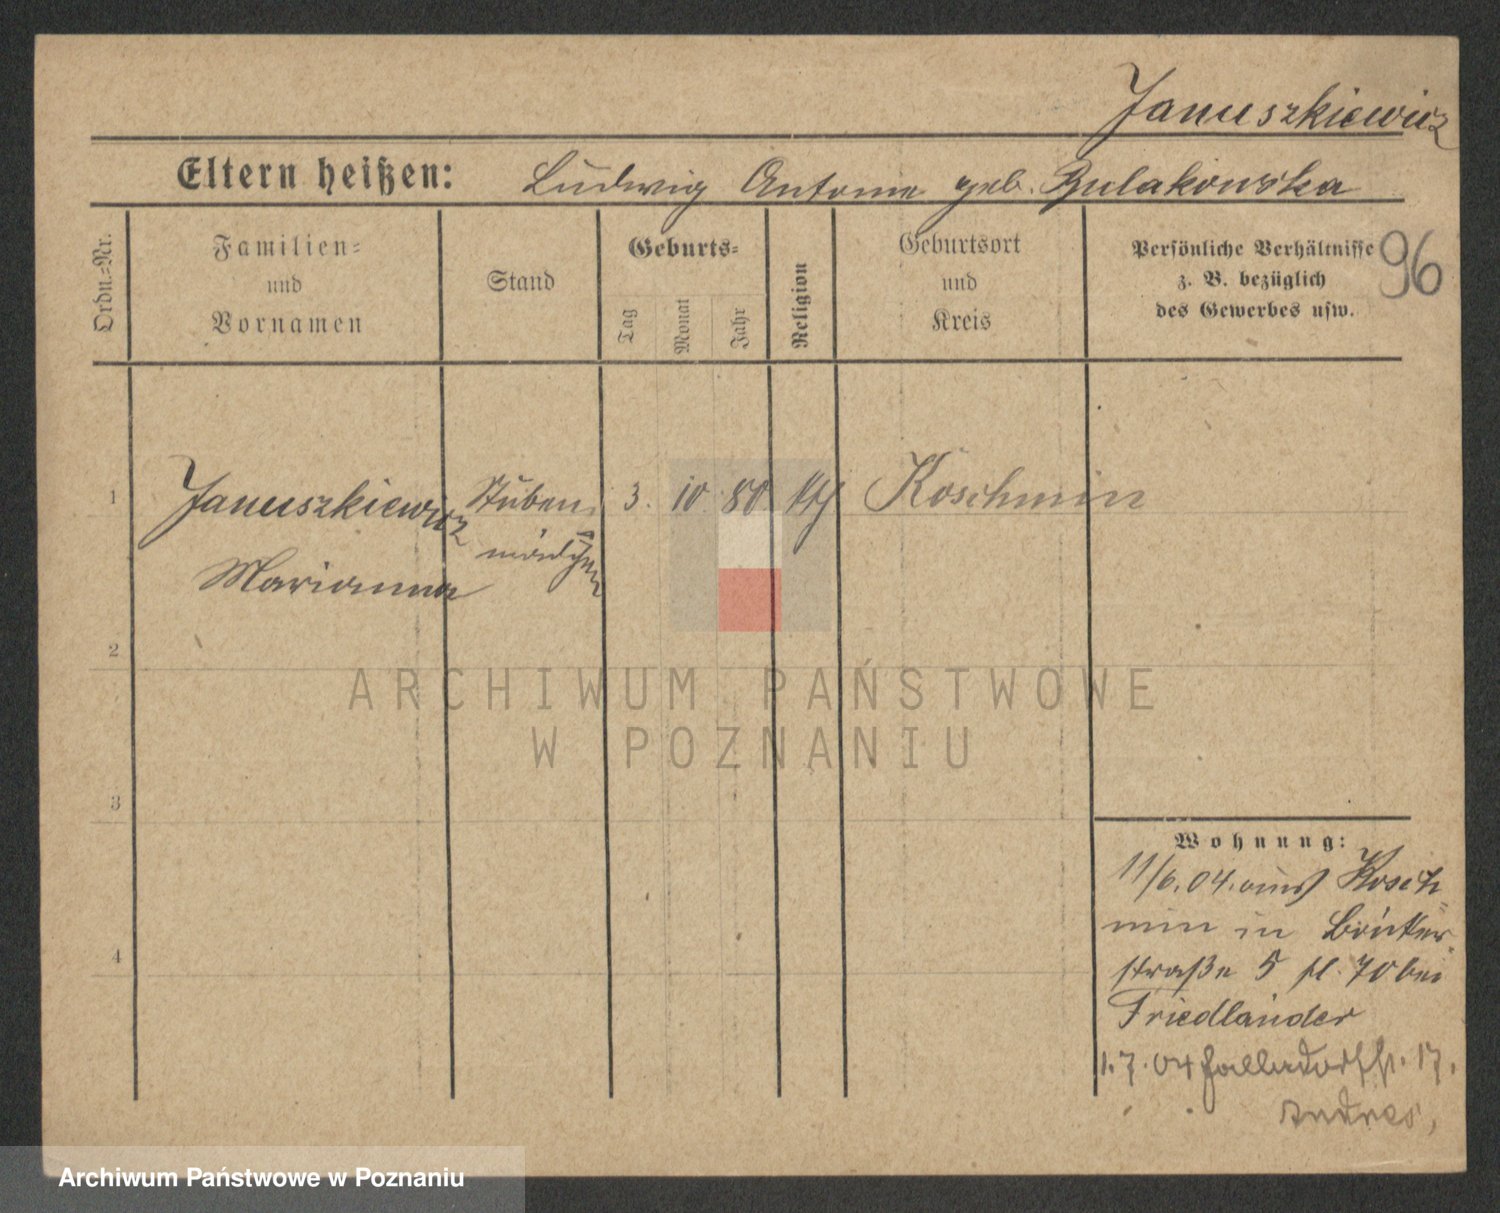 Januszkiewicz
Eltern heißen: Ludwig Antonie geb. Bulakowska
Ordn.-Nr.
Familien-
und
Vornamen
Stand
Geburts-
Tag
Monat
Jahr
Religion
Geburtsort
und
Kreis
Persönliche Verhältnisse
z. B. bezüglich
des Gewerbes usw.
96
1 Januszkiewicz Stuben- 3. 10. 80. kth Koschmin
mädchen
Marianna
2
3
4
Wohnung:
11/6.04. aus Kosch-
min in Bäcker-
straße 5 pl. 70 bei
Friedländer
1.7.04 17.
ARCHIWUM PAŃSTWOWE
W POZNANIU
Archiwum Państwowe w Poznaniu